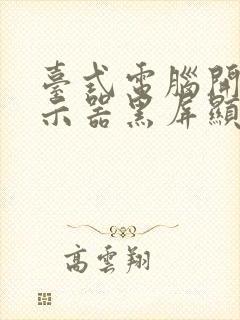 臺式電腦開
示器黑屏顯
高雲翔